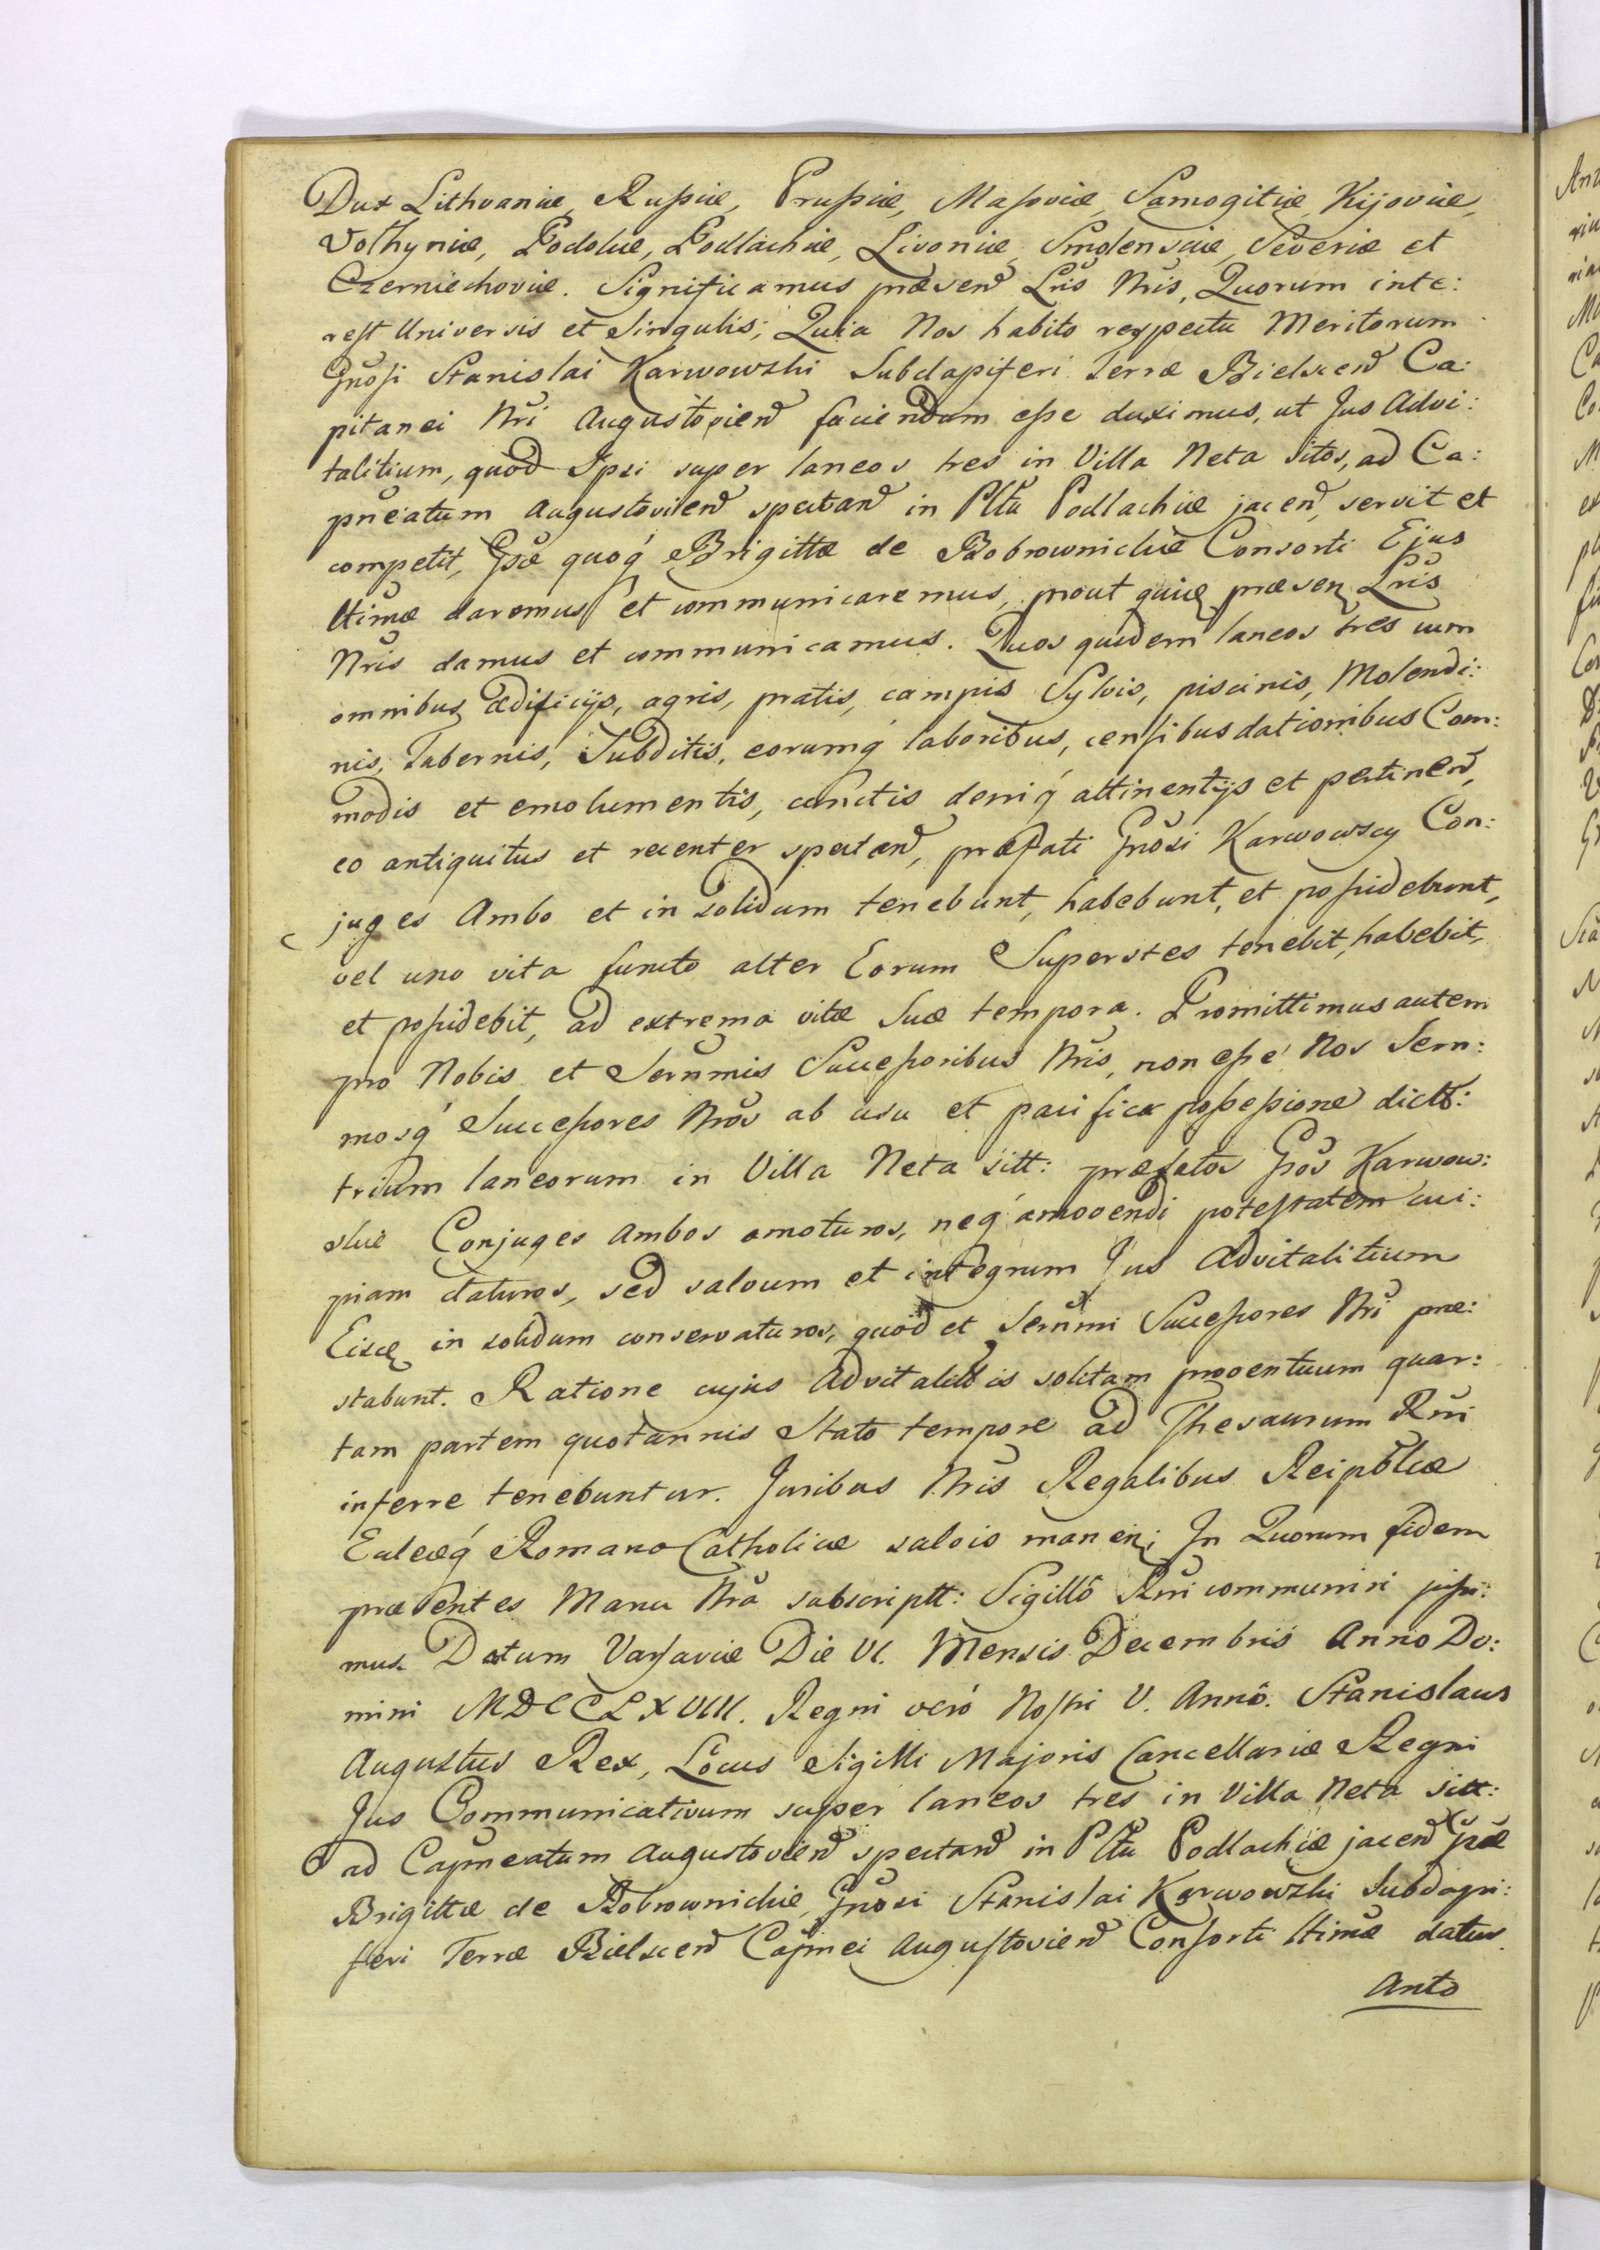 Dux Lithvaniæ, Rußiæ, Prußiæ, Masoviæ, Samogitiæ, Kijoviæ,
Volhyniæ, Podoliæ, Podlachiæ, Livoniæ, Smolensciæ, Severiæ et
Czerniechoviæ. Significamus præsen Lris Nris, Quorum inte:
rest Universis et Singulis; Quia Nos habito respectu Meritorum
Gnosi Stanislai Karwowski Subdapiferi Terræ Bielscen Ca:
pitanei Nri Augustovien faciendum eße duximus, ut Jus Advi:
talitium, quod Ipsi super laneos tres in Villa Neta sitos, ad Ca:
pneatum Augustovien spectan in Pltu Podlachiæ jacen, servit et
competit, Gsæ quoq́ Brigittæ de Bobrownickie Consorti Ejus
ltimæ daremus et communicaremus, prout præsen Lris
Nris damus et communicamus. Quos quidem laneos tres cum
omnibus ædificijs, agris, pratis, campis Sylvis, piscinis, Molendi:
nis, Tabernis, Subditis, eorumq́ laboribus, censibus dationibus Com:
modis et emolumentis, cunctis deniq́ attinentijs et pertinen,
eo antiquitus et recenter spectan, præfati Gnosi Karwowscy Con:
juges Ambo et in solidum tenebunt, habebunt, et poßidebunt,
vel uno vita functo alter Eorum Superstes tenebit, habebit,
et poßidebit, ad extrema vitæ Suæ tempora. Promittimus autem
pro Nobis et Serñmis Succeßoribus Nris, non eße Nos Sern:
mosq́ Succeßores Nros ab usu et pacifica poßeßione dictt:
trium laneorum in Villa Neta sitt: præfatos Gsos Karwow:
skie Conjuges Ambos amoturos, neq́ amovendi potestatem cui:
piam daturos, sed salvum et integrum Jus Advitalitium
Eisdem in solidum conservaturos, quod et Serñmi Succeßores Nri præ:
stabunt. Ratione cujus Advitalittis solitam proventuum quar:
tam partem quotannis Stato tempore ad Thesaurum Rni
inferre tenebuntur. Juribus Nris Regalibus Reipblicæ
Ecleæq́ Romano Catholicæ salvis manen; In Quorum fidem
præsentes Manu Nra subscriptt: Sigillo Rni communiri jußi:
mus. Datum Varsaviæ Die VI. Mensis Decembris Anno Do:
mini MDCCLXVIII. Regni veró Nostri V. Annô. Stanislaus
Augustus Rex, Locus Sigilli Majoris Cancellariæ Regni
Jus Communicativum super laneos tres in Villa Neta sitt:
ad Capneatum Augustovien spectan in Pltu Podlachiæ jacen Gsæ
Brigittæ de Bobrownickie, Gnosi Stanislai Karwowski Subdapi:
feri Terræ Bielscen Capnei Augustovien Consorti ltimæ datur.
Anto